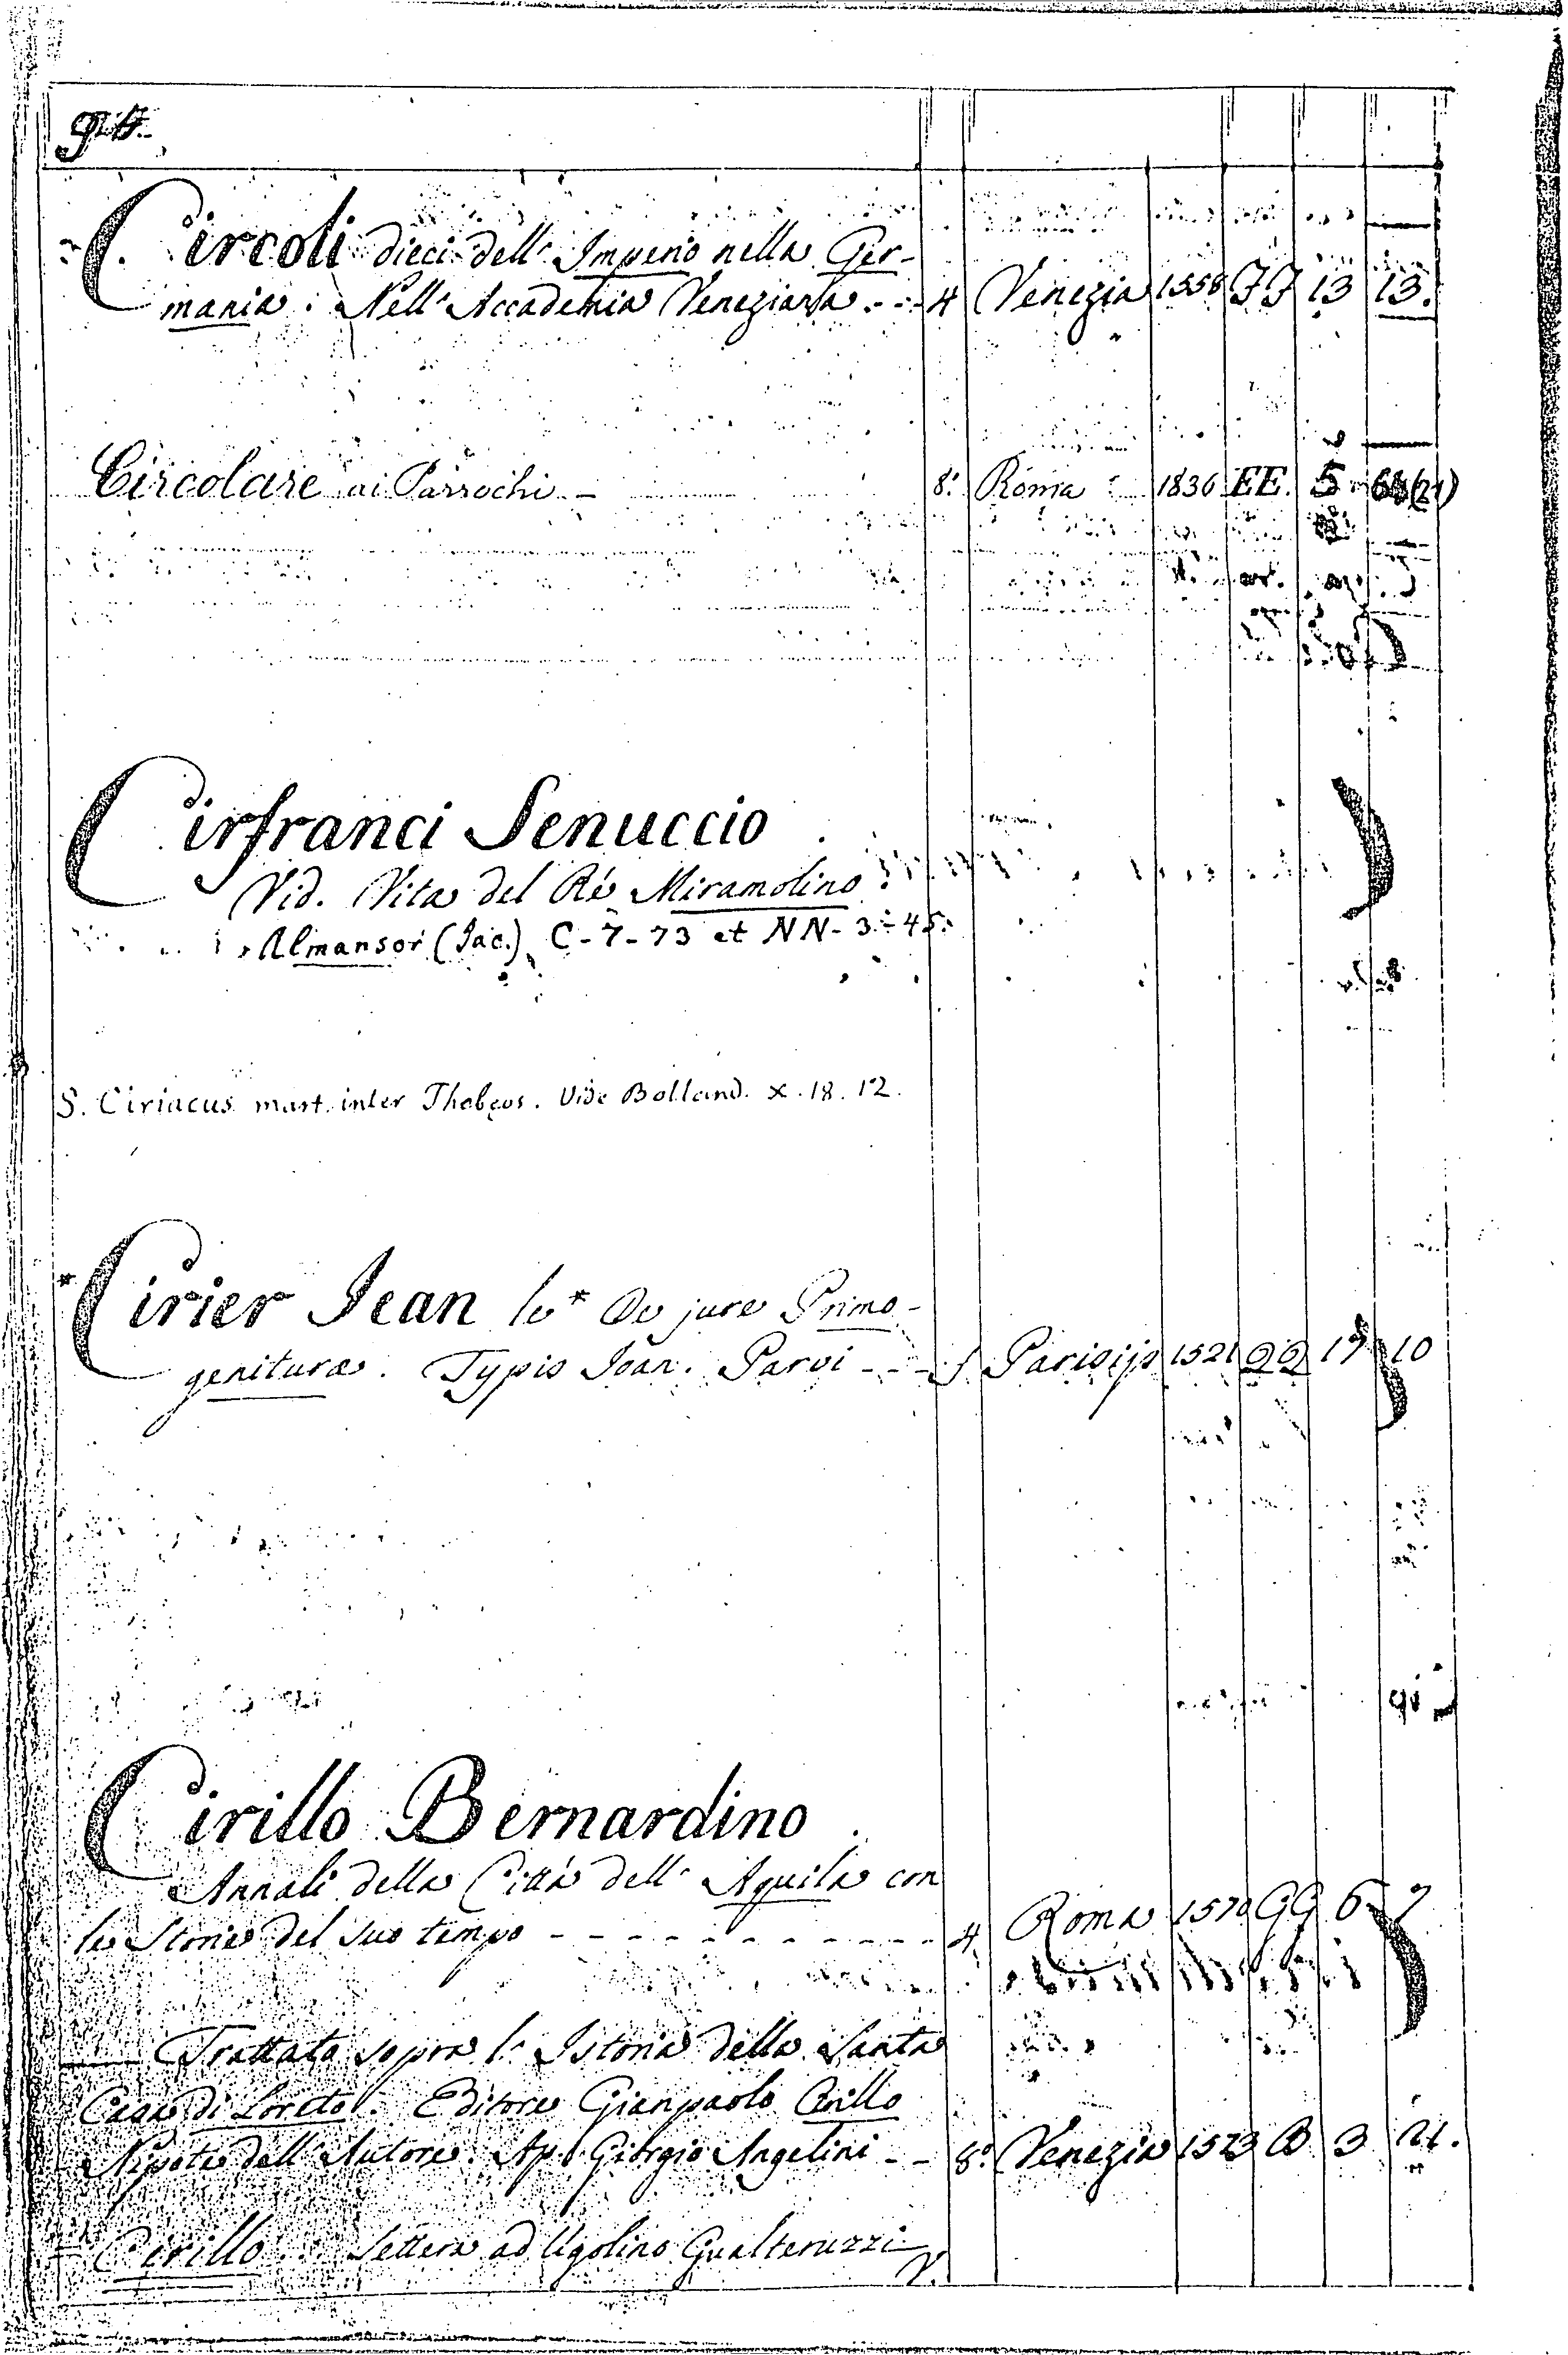 Circoli dieci dell' Imperio nella Ger-
mania. Nell' Accademia Veneziana. - - 4 Venezia 1558 JJ 13 13.
Circolare ai Parrochi - 8.º Roma 1836 EE. 5 68(21)
Cirfranci Senuccio
Vid. Vita del Ré Miramolino
Almansor (Jac.) C-7-73 et NN-3-45.
S. Ciriacus mart. inter Thebęos. Vide Bolland. X. 18. 12.
*Cirier Jean le* De jure Primo-
geniturae. Typis Joan. Parvi - - - f Parisijs 1521 QQ 17 10
Cirillo Bernardino
Annali della Città dell' Aquila con
le Storie del suo tempo - - - - - - - - - - - 4. Roma 1570 GG 6 7
Trattato sopra l' Istoria della Santa
Casa di Loreto. Editore Gianpaolo Cirillo
Nipote dell' Autore. Ap. Giorgio Angelini - - 8.º Venezia 1573 B 3 21.
Cirillo. Lettera ad Ugolino Gualteruzzi
V.